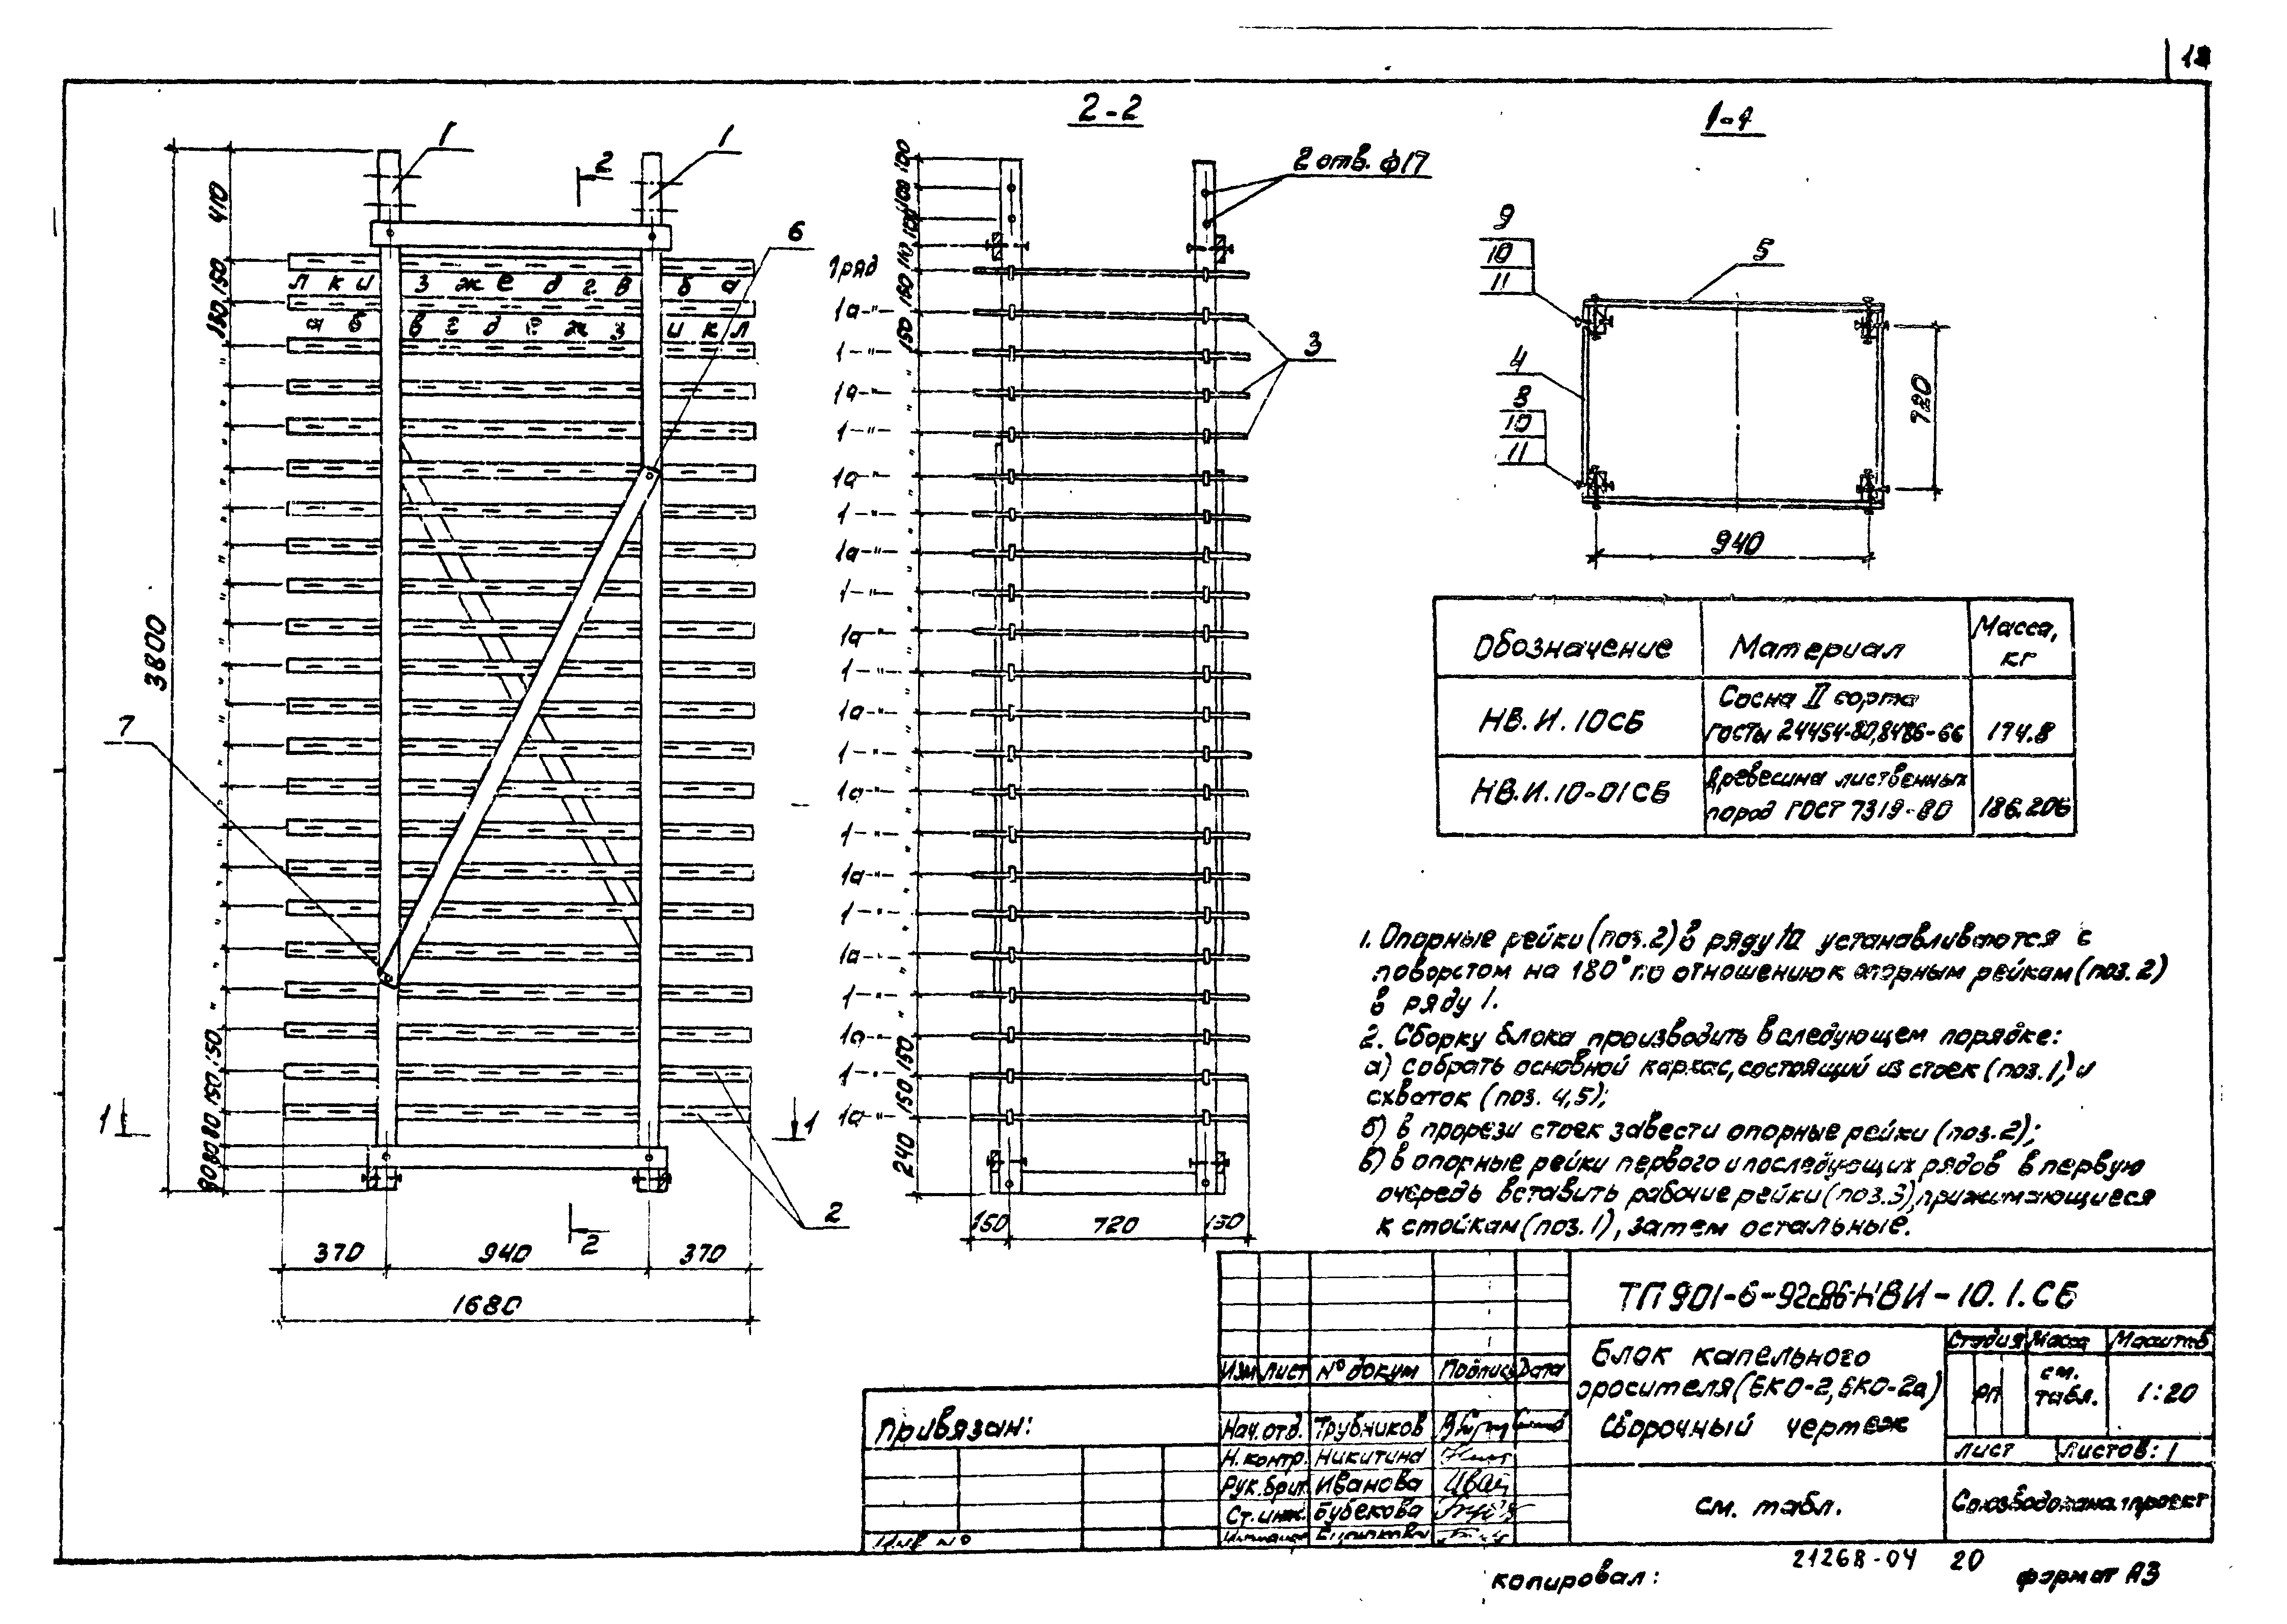 2-2
1-1
1
1
2
6
410
150
150
3800
7
л к и з ж е д г в б а
а б в г д е ж з и к л
1
1
2
2
150
150
80
80
80
370
940
370
1680
100
100
100
110
150
150
2 отв. ф17
1 ряд
1а-"-
1-"-
1а-"-
1-"-
1а-"-
1-"-
1а-"-
1-"-
1а-"-
1-"-
1а-"-
1-"-
1а-"-
1-"-
1а-"-
1-"-
1а-"-
1-"-
1а-"-
1-"-
1а-"-
3
150
150
240
150
720
150
9
10
11
5
4
8
10
11
720
940
Обозначение Материал Масса, кг
НВ.И.10СБ Сосна II сорта ГОСТы 24454-80, 8486-66 174.8
НВ.И.10-01СБ Древесина лиственных пород ГОСТ 7319-80 186.206
1. Опорные рейки (поз.2) в ряду 1а устанавливаются с
поворотом на 180° по отношению к опорным рейкам (поз.2)
в ряду 1.
2. Сборку блока производить в следующем порядке:
а) собрать основной каркас, состоящий из стоек (поз.1) и
схваток (поз. 4,5);
б) в прорези стоек завести опорные рейки (поз.2);
в) в опорные рейки первого и последующих рядов в первую
очередь вставить рабочие рейки (поз.3), прижимающиеся
к стойкам (поз.1), затем остальные.
ТП 901-6-92с.86-НВИ-10.1.СБ
Блок капельного
оросителя (БКО-2, БКО-2а)
Сборочный чертеж
Стадия Масса Масштаб
РП см. табл. 1:20
Лист Листов: 1
см. табл.
Союзводоканалпроект
Изм Лист № докум Подпись Дата
Нач.отд. Трубников
Н.контр. Никитина
Рук.бриг. Иванова
Ст.инж. Бубекова
Привязан:
Инв №
21268-04 20
копировал:
формат А3